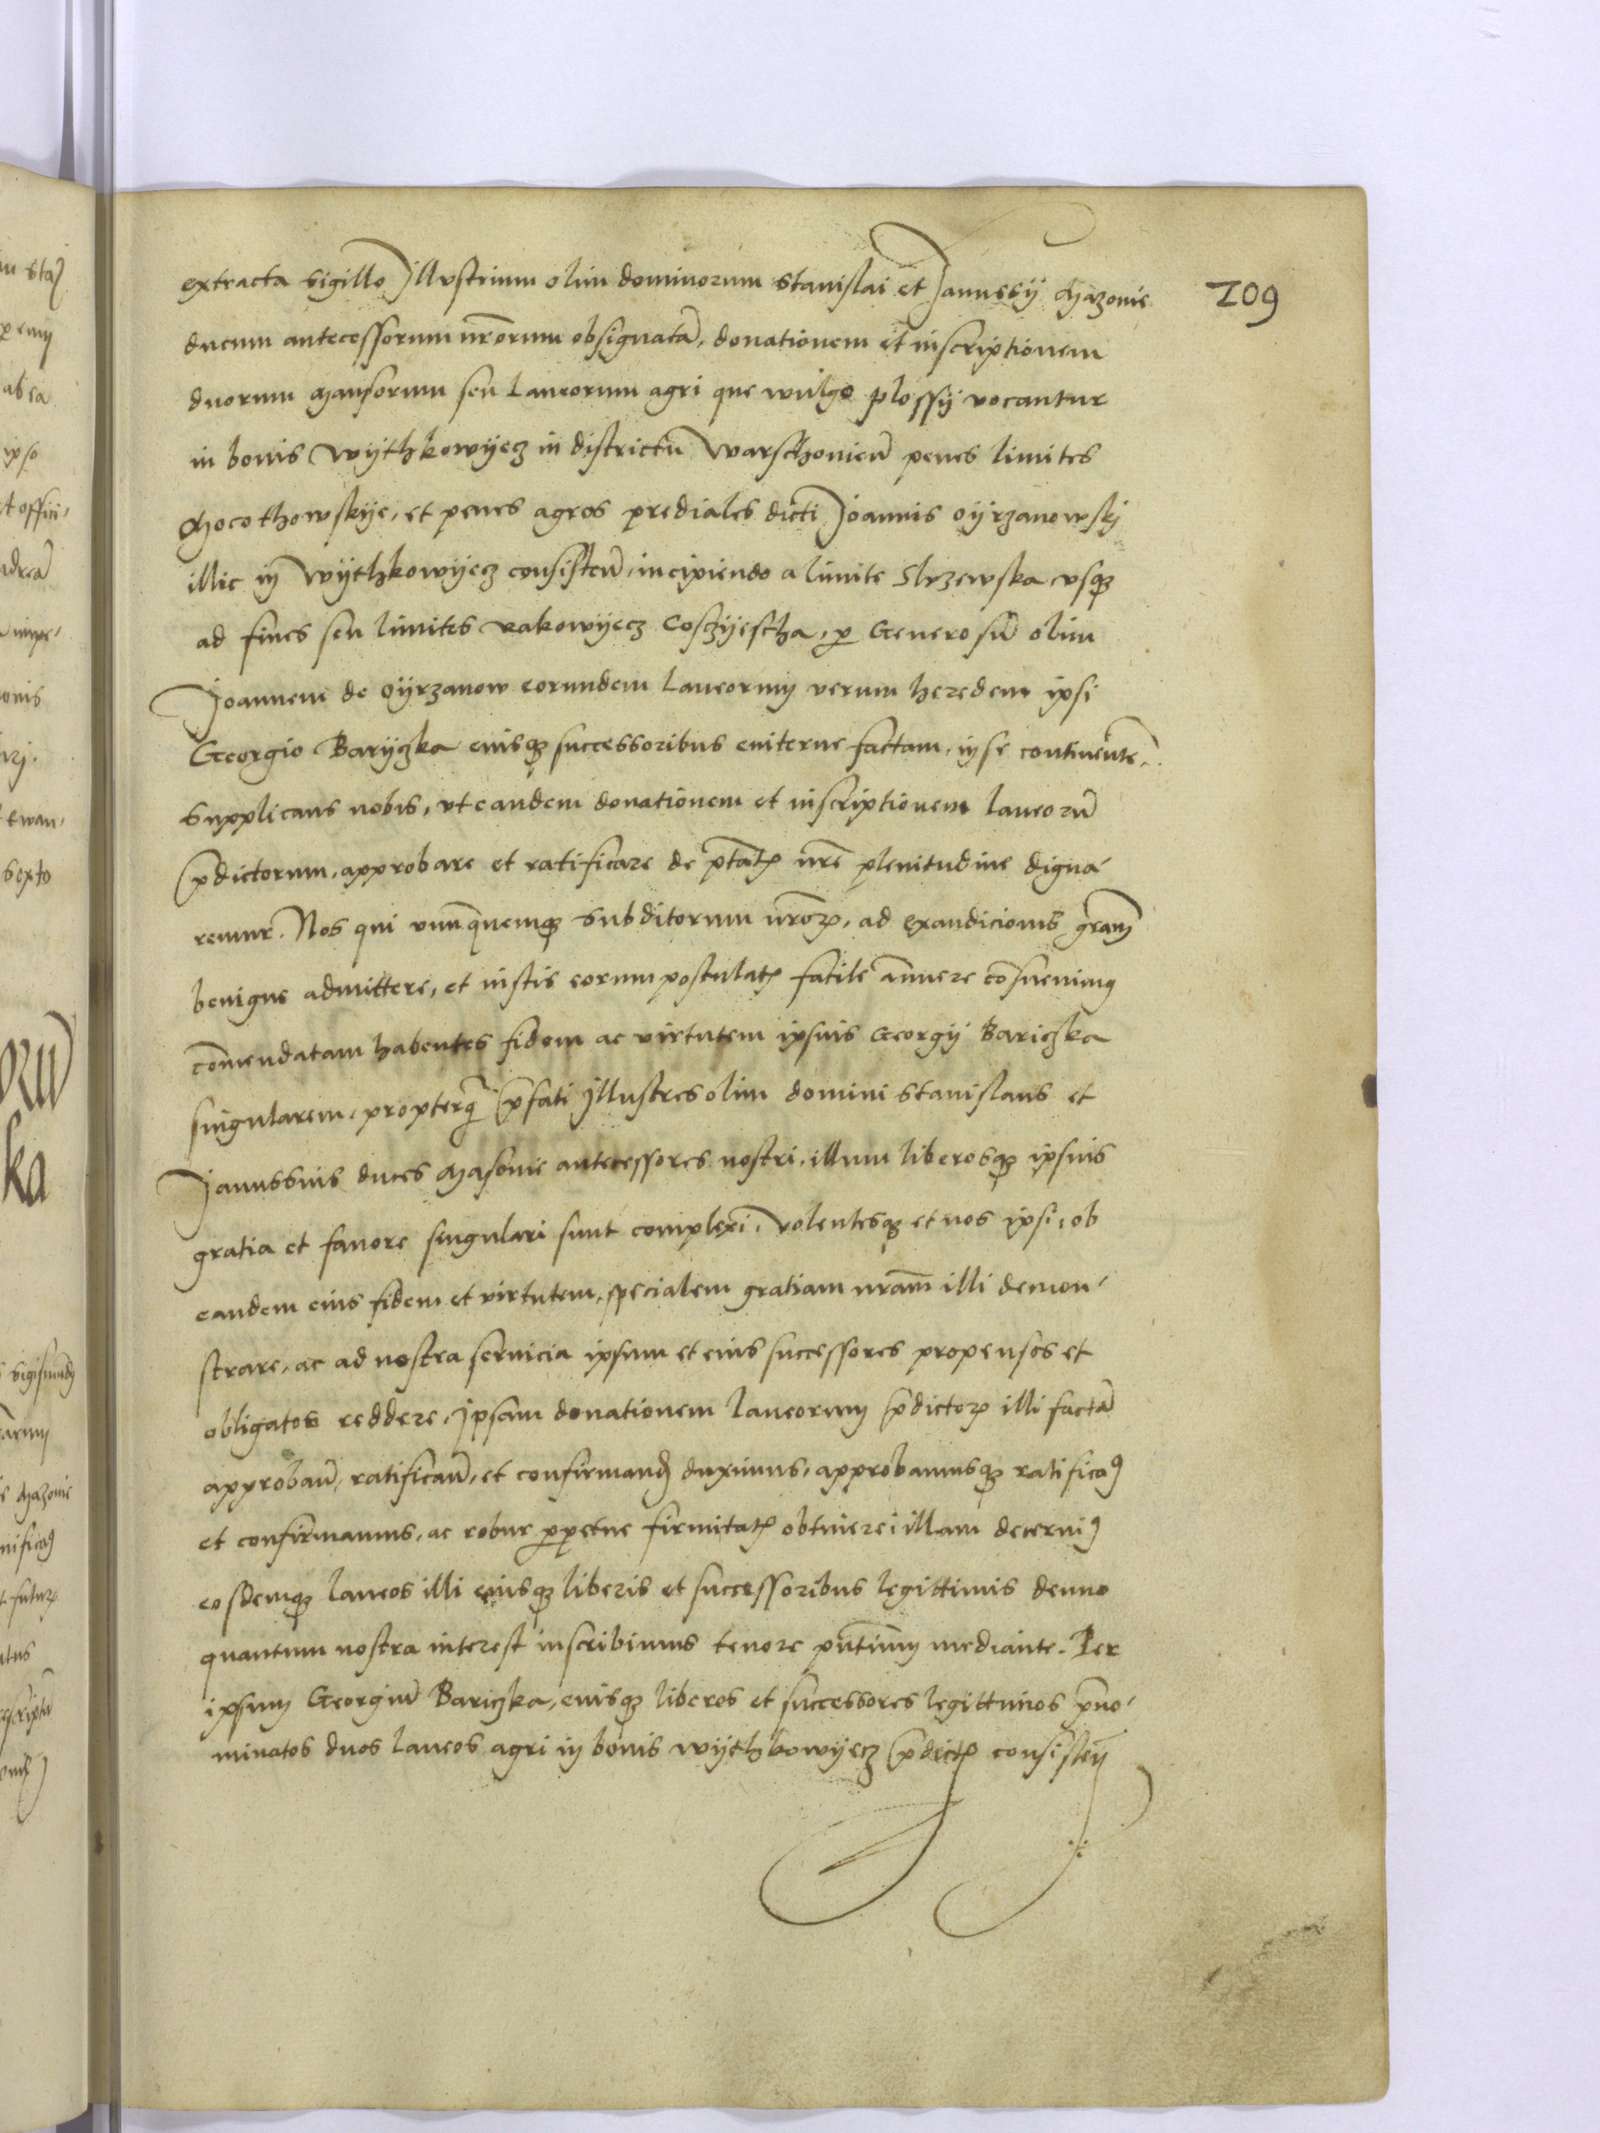 extracta sigillo Jllustrium olim dominorum Stanislai et Janussij Mazovie
209
ducum antecessorum nr̃orum obsignatã, donationem et inscriptionem
duorum Mansorum seu Laneorum agri que wulgo plossy vocantur
in bonis Wythkowyecz in districtu Warschovieñ penes limites
Mocothowskye, et penes agros prediales dicti Joannis Oyrzanowskj
illic in Wythkowyecz consisteñ, incipiendo a limite Slrzewska usq3
ad fines seu limites rakowyecz Coszyescha, p Generosũ olim
Joannem de Oyrzanow eorundem Laneorum verum heredem ipsi
Georgio Baryczka eiusq3 successoribus eviterne factam, in se continentẽ.
Supplicans nobis, ut eandem donationem et inscriptionem laneorũ
p̃dictorum, approbare et ratificare de ptãtꝭ nr̃e plenitudine digna-
remur. Nos qui unũquemq3 subditorum nr̃orꝝ, ad exaudicionis grãm
benigne admittere, et iustis eorum postulatꝭ facile annuere cõsuevimꝰ
cõmendatam habentes fidem ac virtutem ipsius Georgij Bariczka
singularem, propterq̃ p̃fati Jllustres olim domini Stanislaus et
Janussius duces Masovie antecessores nostri, illum liberosq3 ipsius
gratia et favore singulari sunt complexi, Volentesq3 et nos ipsi, ob
eandem eius fidem et virtutem, specialem gratiam nrãm illi demon-
strare, ac ad nostra servicia ipsum et eius successores propensos et
obligatos reddere, Jpsam donationem laneorum p̃dictorꝝ illi factã
approbañ, ratificañ, et confirmand duximus, approbamusq3 ratificaꝰ
et confirmamus, ac robur ꝑpetue firmitatꝭ obtinere illam decerniꝰ
eosdemq3 laneos illi eiusq3 liberis et successoribus legittimis denuo
quantum nostra interest inscribimus tenore pñtium mediante. Per
ipsum Georgiũ Bariczka, eiusq3 liberos et successores legittimos p̃no-
minatos duos laneos agri in bonis Wythkowyecz p̃dictꝭ consisteñ